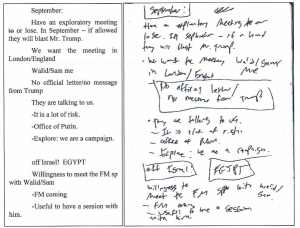 September:
Have an exploratory meeting
to or lose. In September – if allowed
they will blast Mr. Trump.
We want the meeting in
London/England
Walid/Sam me
No official letter/no message
from Trump
They are talking to us.
-It is a lot of risk.
-Office of Putin.
-Explore: we are a campaign.
off Israel! EGYPT
Willingness to meet the FM sp
with Walid/Sam
-FM coming
-Useful to have a session with
him.
September:
Have an exploratory meeting to or
lose. In September – if allowed
they will blast Mr. Trump.
We want the meeting Walid/Sam
in London/England me
No official letter/
no message from Trump
They are talking to us.
- It is a lot of risk.
- Office of Putin.
- Explore: we are a campaign.
off Israel! EGYPT
Willingness to
meet the FM sp with Walid/
Sam
- FM coming
- Useful to have a session
with him.